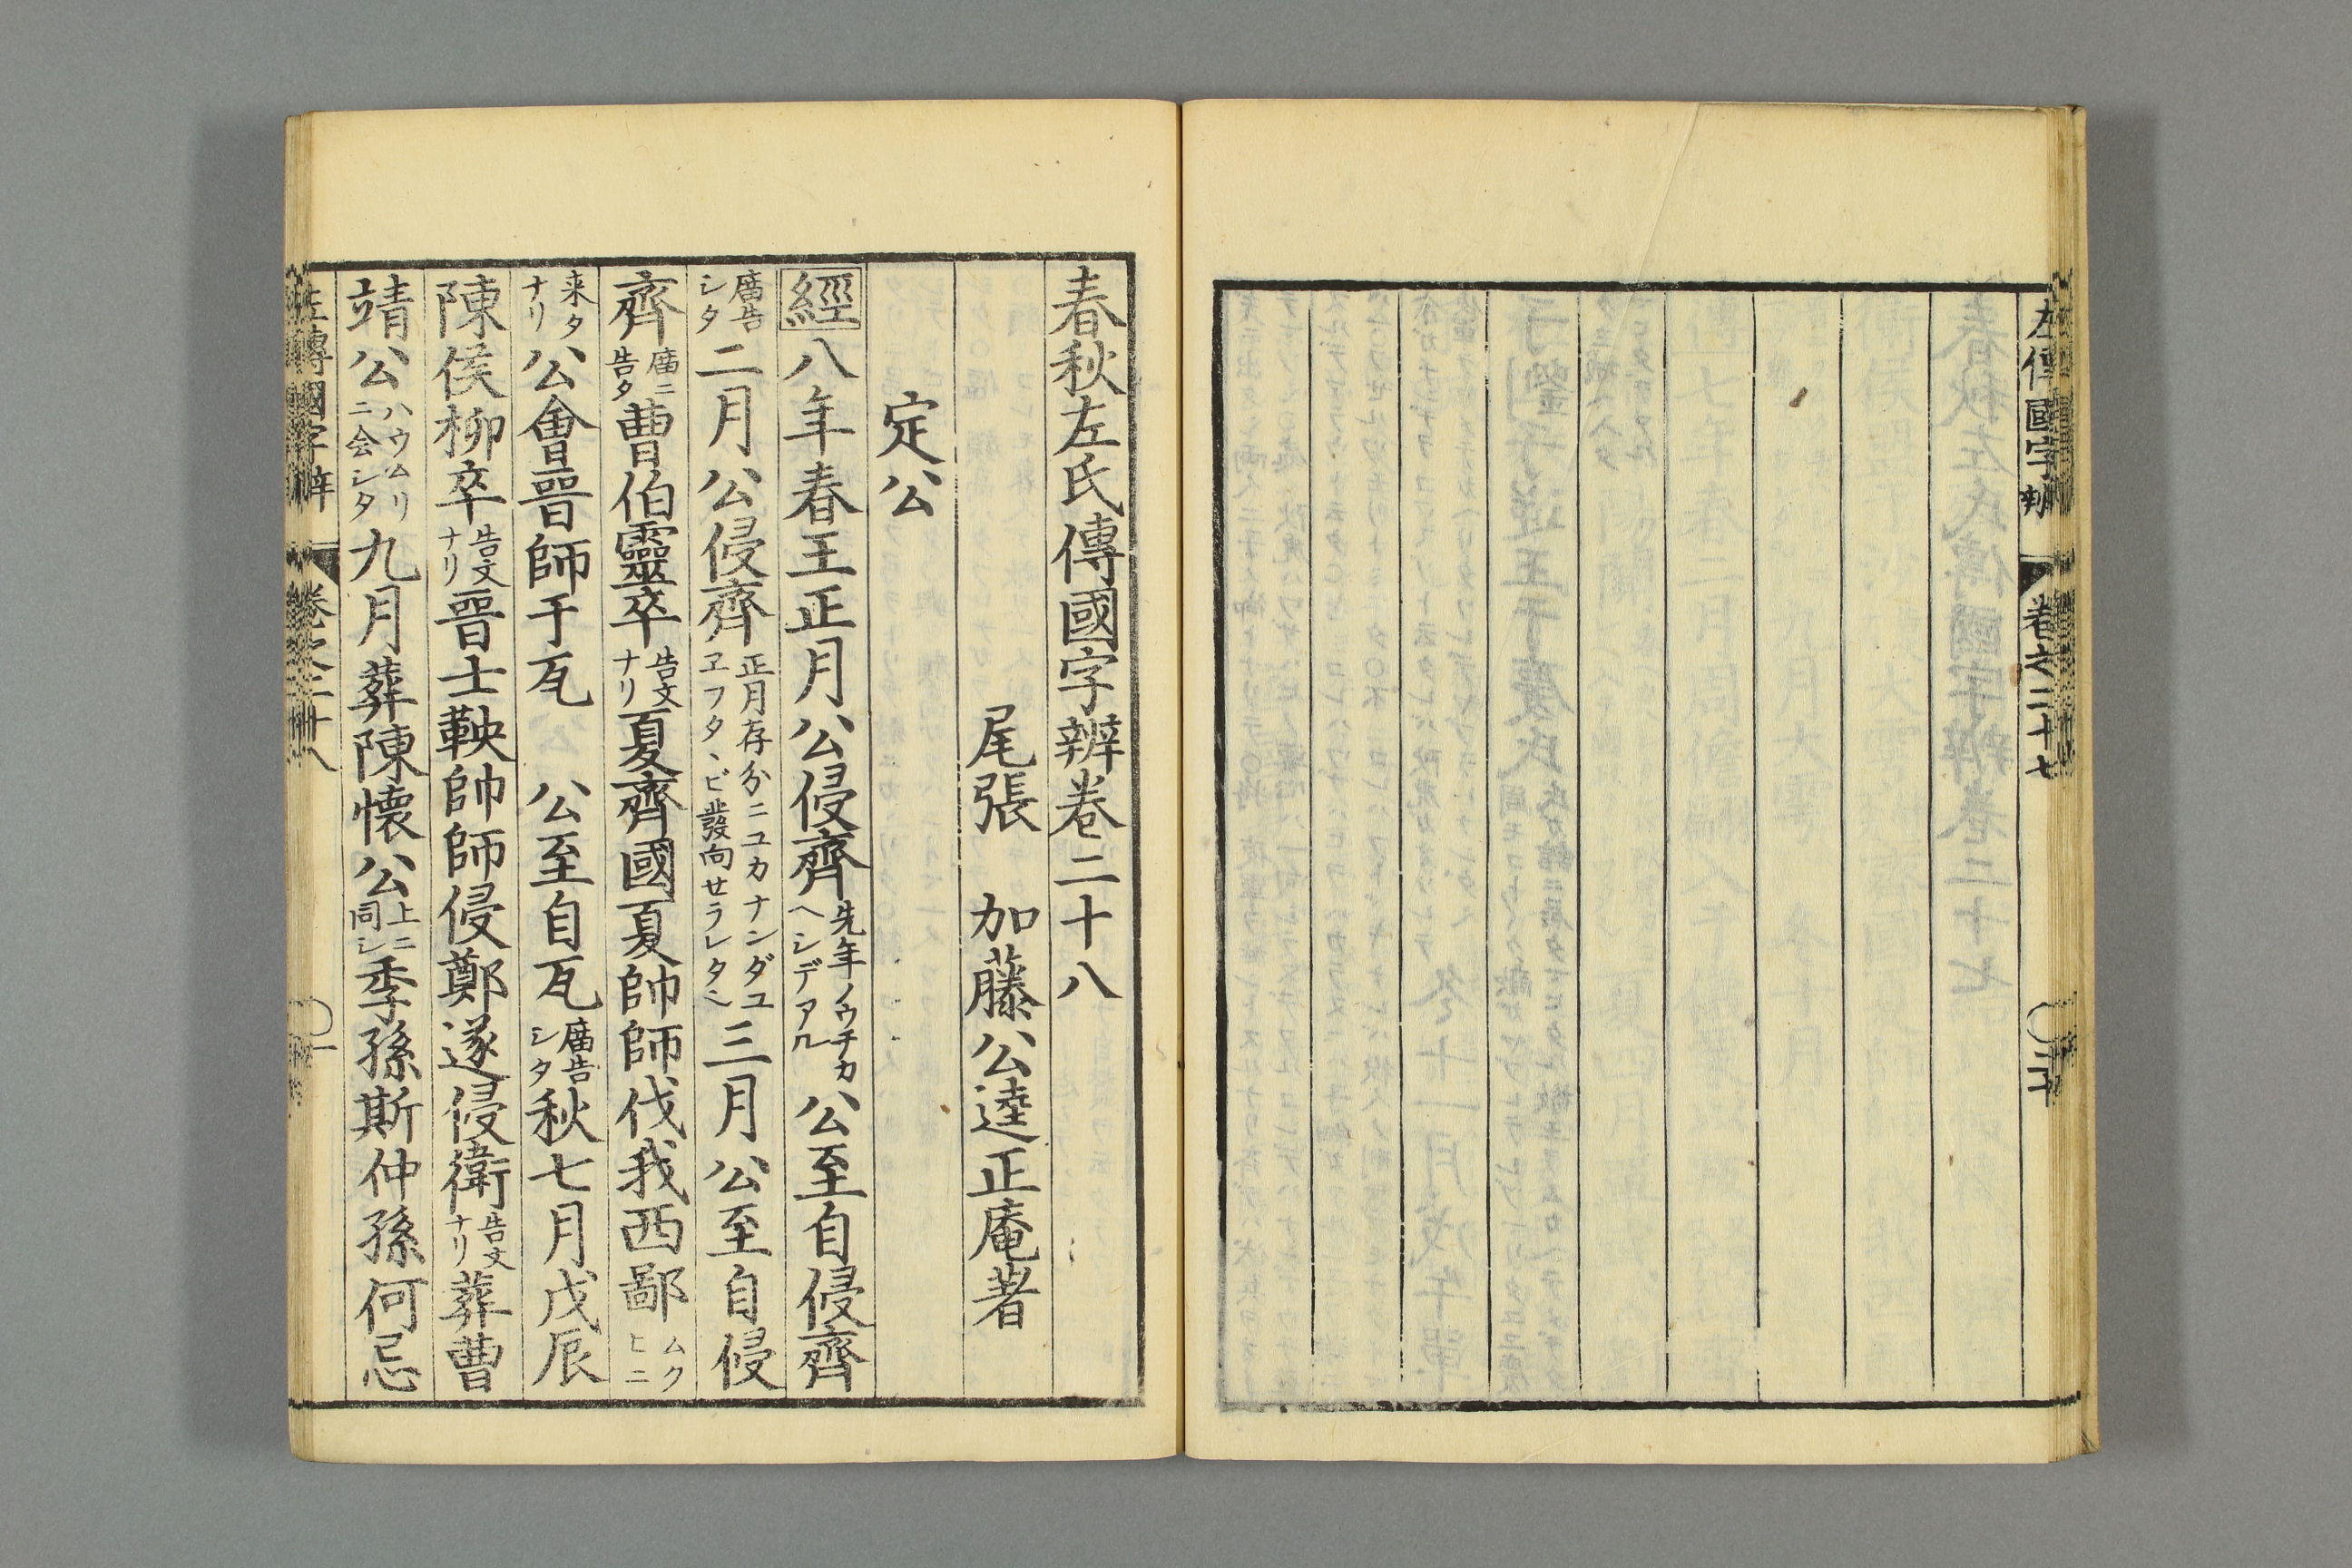 左傳國字辨 卷之二十七
春秋左氏傳國字辨卷二十八
尾張 加藤公逵正庵著
定公
經八年春王正月公侵齊先年ノウチカヘシデアル公至自侵齊
廣告シタ二月公侵齊正月存分ニユカナンダユヱフタヽビ發向セラレタ三月公至自侵
齊廣ニ告タ曹伯靈卒告文ナリ夏齊國夏帥師伐我西鄙ムクヒニ
来タナリ公會晉師于瓦 公至自瓦廣告シタ秋七月戊辰
陳侯柳卒告文ナリ晉士鞅帥師侵鄭遂侵衛告文ナリ葬曹
靖公ハウムリニ会シタ九月葬陳懐公上ニ同シ季孫斯仲孫何忌
左傳國字辨 卷之二十八 一